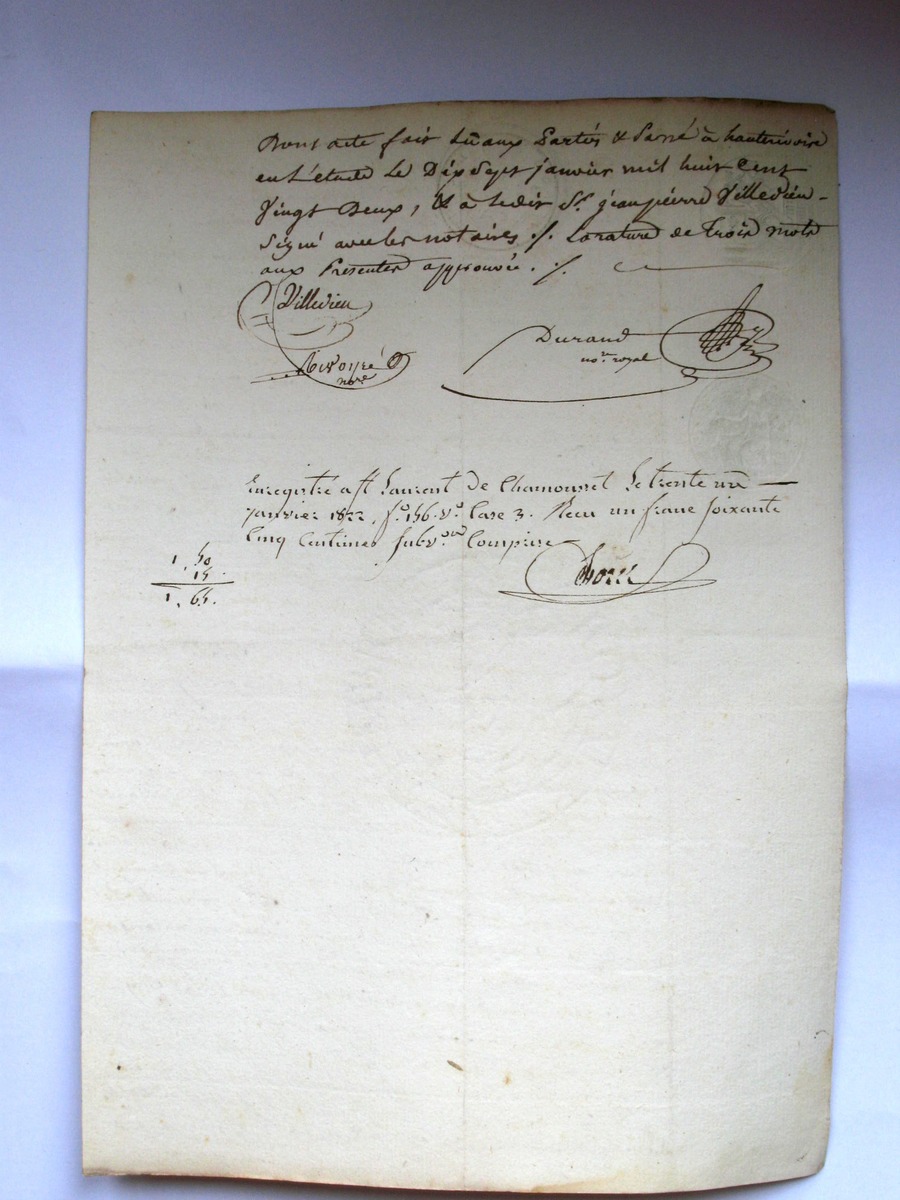 Dont acte fait Lû aux Parties & Passé à hauterivoire
en L'étude Le Dix Sept janvier mil huit Cent
Vingt Deux, & a Ledit Sr. jeanpierre Villedieu
Signé avec les notaires ./. La rature de Trois mots
aux Presentes approuvée ./.
Villedieu
Durand
no.re royal
nore
Enregistré a St Laurent de Chamousset Le trente un
janvier 1822, fo. 156. vo. Case 3. Recu un franc soixante
Cinq Centimes Subv.on Comprise
1, 50
15.
1, 65.